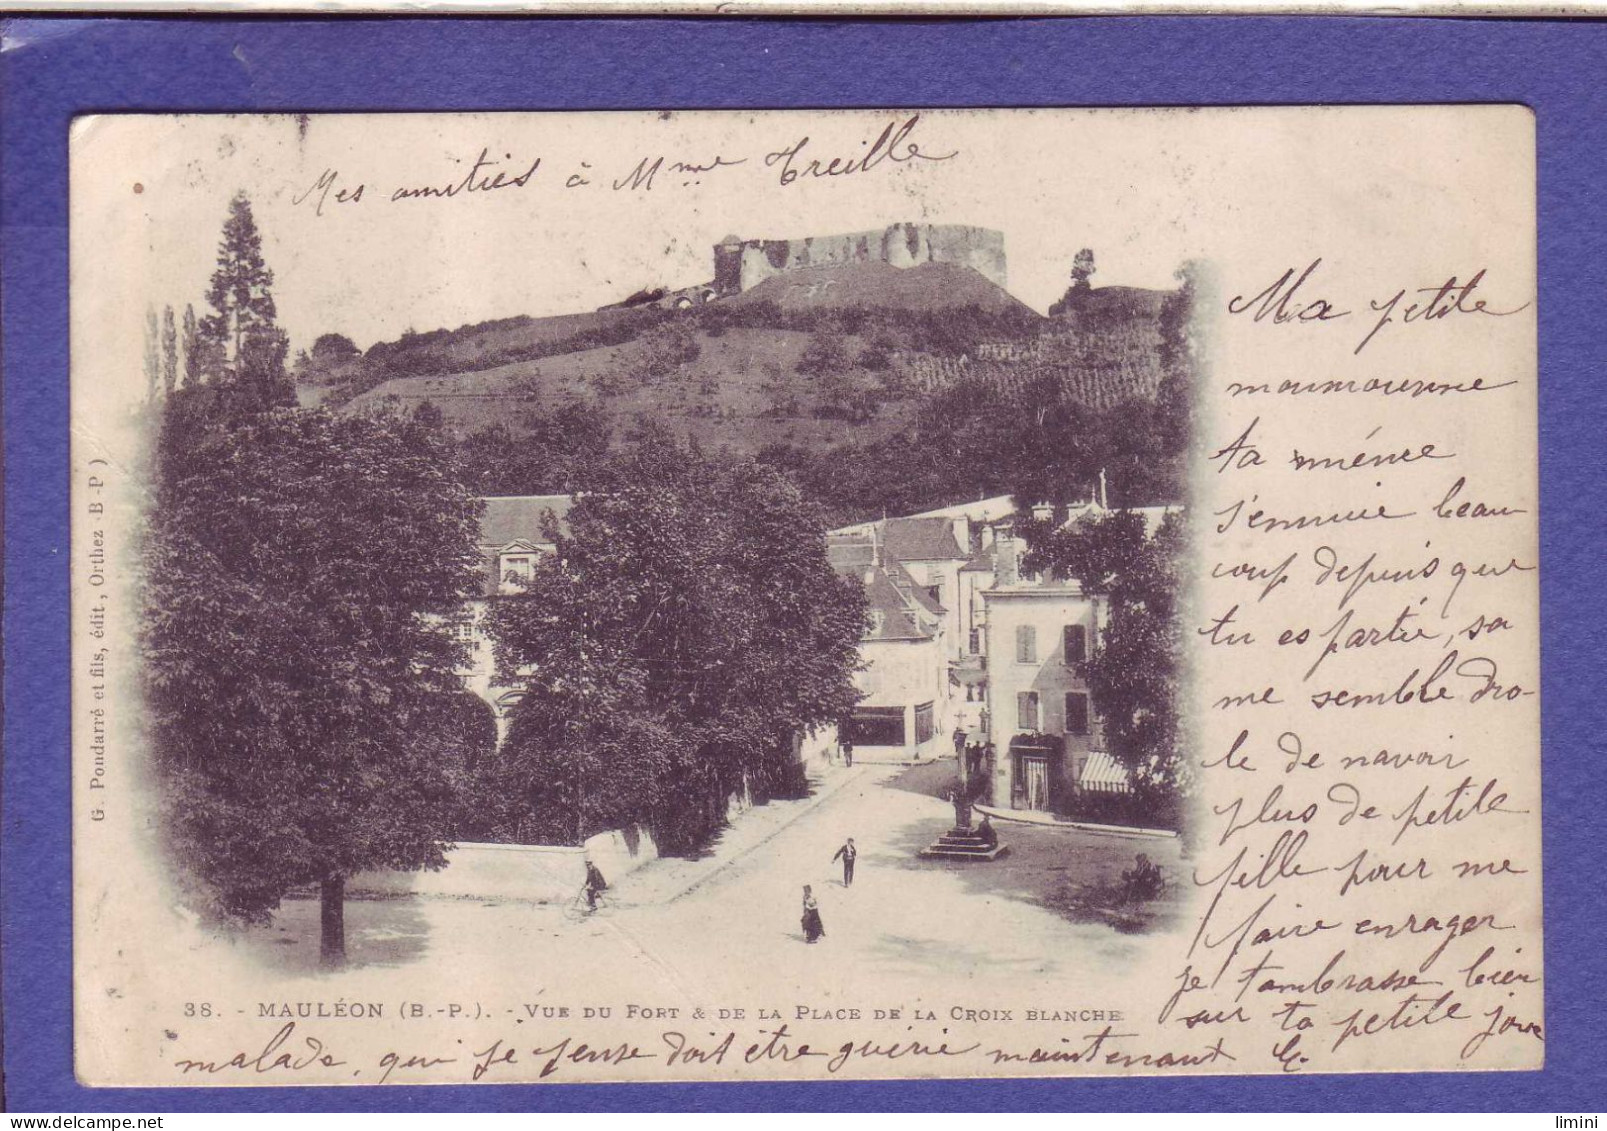 Mes amitiés à Mme Treille
Ma petite
moumounne
ta méme
s'ennuie beau
coup depuis que
tu es partie, sa
me semble dro-
le de navoir
plus de petite
fille pour me
faire enrager
je t'ambrasse bien
sur ta petite joue
malade, qui je pense doit être guérie maintenant
G. Pondarré et fils, édit., Orthez (B-P)
38. - MAULÉON (B.-P.). - VUE DU FORT & DE LA PLACE DE LA CROIX BLANCHE
limini